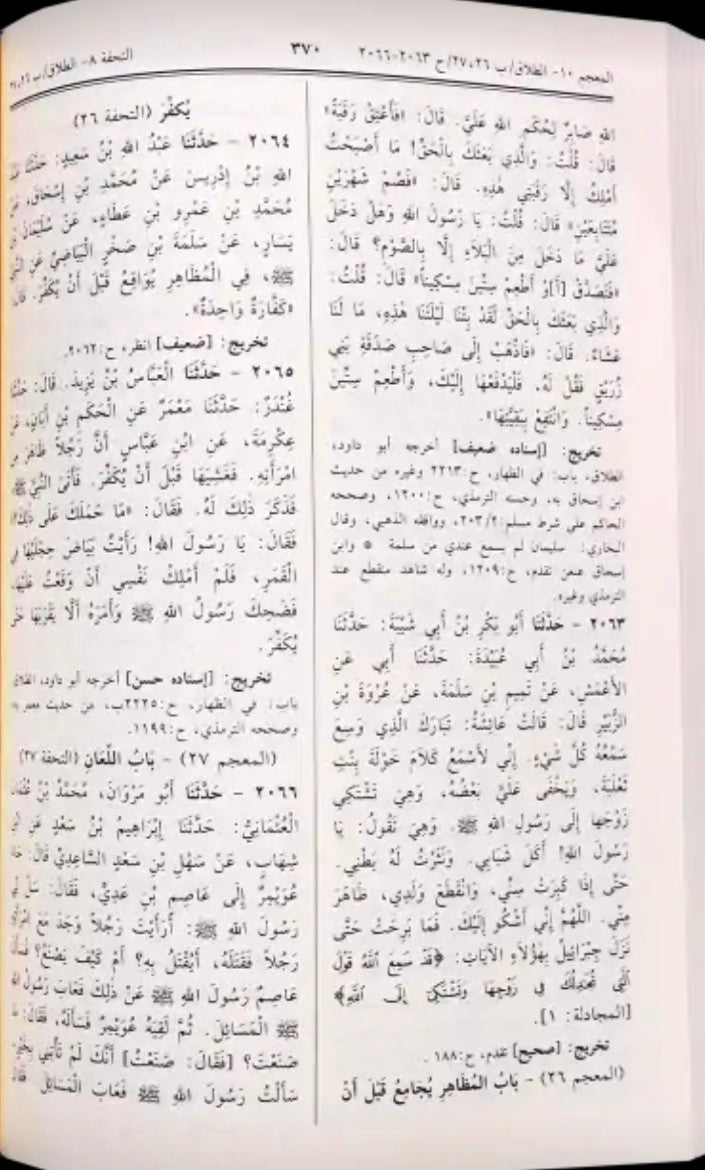 المعجم ١٠- الطلاق/ ب ٢٧،٢٦/ ح ٢٠٦٣-٢٠٦٦
٣٧٠
التحفة ٨- الطلاق/ ب ٢٦،
اللهِ صَابِرٌ لِحُكْمِ اللهِ عَلَيَّ. قَالَ: «فَأَعْتِقْ رَقَبَةً»
قَالَ: قُلْتُ: وَالَّذِي بَعَثَكَ بِالْحَقِّ! مَا أَصْبَحْتُ
أَمْلِكُ إِلَّا رَقَبَتِي هٰذِهِ. قَالَ: «فَصُمْ شَهْرَيْنِ
مُتَتَابِعَيْنِ» قَالَ: قُلْتُ: يَا رَسُولَ اللهِ وَهَلْ دَخَلَ
عَلَيَّ مَا دَخَلَ مِنَ الْبَلَاءِ إِلَّا بِالصَّوْمِ؟ قَالَ:
«فَتَصَدَّقْ [أَ]وْ أَطْعِمْ سِتِّينَ مِسْكِيناً» قَالَ: قُلْتُ:
وَالَّذِي بَعَثَكَ بِالْحَقِّ لَقَدْ بِتْنَا لَيْلَتَنَا هٰذِهِ، مَا لَنَا
عَشَاءٌ. قَالَ: «فَاذْهَبْ إِلَى صَاحِبِ صَدَقَةِ بَنِي
زُرَيْقٍ فَقُلْ لَهُ، فَلْيَدْفَعْهَا إِلَيْكَ، وَأَطْعِمْ سِتِّينَ
مِسْكِيناً. وَانْتَفِعْ بِبَقِيَّتِهَا».
تخريج: [إسناده ضعيف] أخرجه أبو داود،
الطلاق، باب: في الظهار، ح:٢٢١٣ وغيره من حديث
ابن إسحاق به، وحسنه الترمذي، ح:١٢٠٠، وصححه
الحاكم على شرط مسلم:٢/ ٢٠٣، ووافقه الذهبي، وقال
البخاري: سليمان لم يسمع عندي من سلمة * وابن
إسحاق عنعن تقدم، ح:١٢٠٩، وله شاهد منقطع عند
الترمذي وغيره.
٢٠٦٣ - حَدَّثَنَا أَبُو بَكْرِ بْنُ أَبِي شَيْبَةَ: حَدَّثَنَا
مُحَمَّدُ بْنُ أَبِي عُبَيْدَةَ: حَدَّثَنَا أَبِي عَنِ
الأَعْمَشِ، عَنْ تَمِيمِ بْنِ سَلَمَةَ، عَنْ عُرْوَةَ بْنِ
الزُّبَيْرِ قَالَ: قَالَتْ عَائِشَةُ: تَبَارَكَ الَّذِي وَسِعَ
سَمْعُهُ كُلَّ شَيْءٍ. إِنِّي لأَسْمَعُ كَلَامَ خَوْلَةَ بِنْتِ
ثَعْلَبَةَ، وَيَخْفَى عَلَيَّ بَعْضُهُ، وَهِيَ تَشْتَكِي
زَوْجَهَا إِلَى رَسُولِ اللهِ ﷺ. وَهِيَ تَقُولُ: يَا
رَسُولَ اللهِ! أَكَلَ شَبَابِي. وَنَثَرْتُ لَهُ بَطْنِي.
حَتَّى إِذَا كَبِرَتْ سِنِّي، وَانْقَطَعَ وَلَدِي، ظَاهَرَ
مِنِّي. اللّٰهُمَّ إِنِّي أَشْكُو إِلَيْكَ. فَمَا بَرِحَتْ حَتَّى
نَزَلَ جِبْرَائِيلُ بِهٰؤُلَاءِ الآيَاتِ: ﴿قَدْ سَمِعَ ٱللَّهُ قَوْلَ
ٱلَّتِى تُجَـٰدِلُكَ فِى زَوْجِهَا وَتَشْتَكِىٓ إِلَى ٱللَّهِ﴾
[المجادلة: ١].
تخريج: [صحيح] تقدم، ح:١٨٨.
(المعجم ٢٦) - بَابُ الْمُظَاهِرِ يُجَامِعُ قَبْلَ أَنْ
يُكَفِّرَ (التحفة ٢٦)
٢٠٦٤ - حَدَّثَنَا عَبْدُ اللهِ بْنُ سَعِيدٍ: حَدَّثَنَا عَبْدُ
اللهِ بْنُ إِدْرِيسَ عَنْ مُحَمَّدِ بْنِ إِسْحَاقَ، عَنْ
مُحَمَّدِ بْنِ عَمْرِو بْنِ عَطَاءٍ، عَنْ سُلَيْمَانَ بْنِ
يَسَارٍ، عَنْ سَلَمَةَ بْنِ صَخْرٍ الْبَيَاضِيِّ عَنِ النَّبِيِّ
ﷺ، فِي الْمُظَاهِرِ يُوَاقِعُ قَبْلَ أَنْ يُكَفِّرَ. قَالَ
«كَفَّارَةٌ وَاحِدَةٌ».
تخريج: [ضعيف] انظر، ح:٢٠٦٢.
٢٠٦٥ - حَدَّثَنَا الْعَبَّاسُ بْنُ يَزِيدَ. قَالَ: حَدَّثَنَا
غُنْدَرٌ: حَدَّثَنَا مَعْمَرٌ عَنِ الْحَكَمِ بْنِ أَبَانٍ، عَنْ
عِكْرِمَةَ، عَنِ ابْنِ عَبَّاسٍ أَنَّ رَجُلاً ظَاهَرَ مِنِ
امْرَأَتِهِ. فَغَشِيَهَا قَبْلَ أَنْ يُكَفِّرَ. فَأَتَى النَّبِيَّ ﷺ
فَذَكَرَ ذٰلِكَ لَهُ. فَقَالَ: «مَا حَمَلَكَ عَلَى ذٰلِكَ؟»
فَقَالَ: يَا رَسُولَ اللهِ! رَأَيْتُ بَيَاضَ حِجْلَيْهَا فِي
الْقَمَرِ، فَلَمْ أَمْلِكْ نَفْسِي أَنْ وَقَعْتُ عَلَيْهَا.
فَضَحِكَ رَسُولُ اللهِ ﷺ وَأَمَرَهُ أَلَّا يَقْرَبَهَا حَتَّى
يُكَفِّرَ.
تخريج: [إسناده حسن] أخرجه أبو داود، الطلاق
باب: في الظهار، ح:٢٢٢٥ب، من حديث معمر به
وصححه الترمذي، ح:١١٩٩.
(المعجم ٢٧) - بَابُ اللِّعَانِ (التحفة ٢٧)
٢٠٦٦ - حَدَّثَنَا أَبُو مَرْوَانَ، مُحَمَّدُ بْنُ عُثْمَانَ
الْعُثْمَانِيُّ: حَدَّثَنَا إِبْرَاهِيمُ بْنُ سَعْدٍ عَنِ ابْنِ
شِهَابٍ، عَنْ سَهْلِ بْنِ سَعْدٍ السَّاعِدِيِّ قَالَ: جَاءَ
عُوَيْمِرٌ إِلَى عَاصِمِ بْنِ عَدِيٍّ، فَقَالَ: سَلْ لِي
رَسُولَ اللهِ ﷺ: أَرَأَيْتَ رَجُلاً وَجَدَ مَعَ امْرَأَتِهِ
رَجُلاً فَقَتَلَهُ، أَيُقْتَلُ بِهِ؟ أَمْ كَيْفَ يَصْنَعُ؟ فَسَأَلَ
عَاصِمٌ رَسُولَ اللهِ ﷺ عَنْ ذٰلِكَ فَعَابَ رَسُولُ اللهِ
ﷺ الْمَسَائِلَ. ثُمَّ لَقِيَهُ عُوَيْمِرٌ فَسَأَلَهُ، فَقَالَ: مَا
صَنَعْتَ؟ [فَقَالَ: صَنَعْتُ] أَنَّكَ لَمْ تَأْتِنِي بِخَيْرٍ.
سَأَلْتُ رَسُولَ اللهِ ﷺ فَعَابَ الْمَسَائِلَ قَالَ